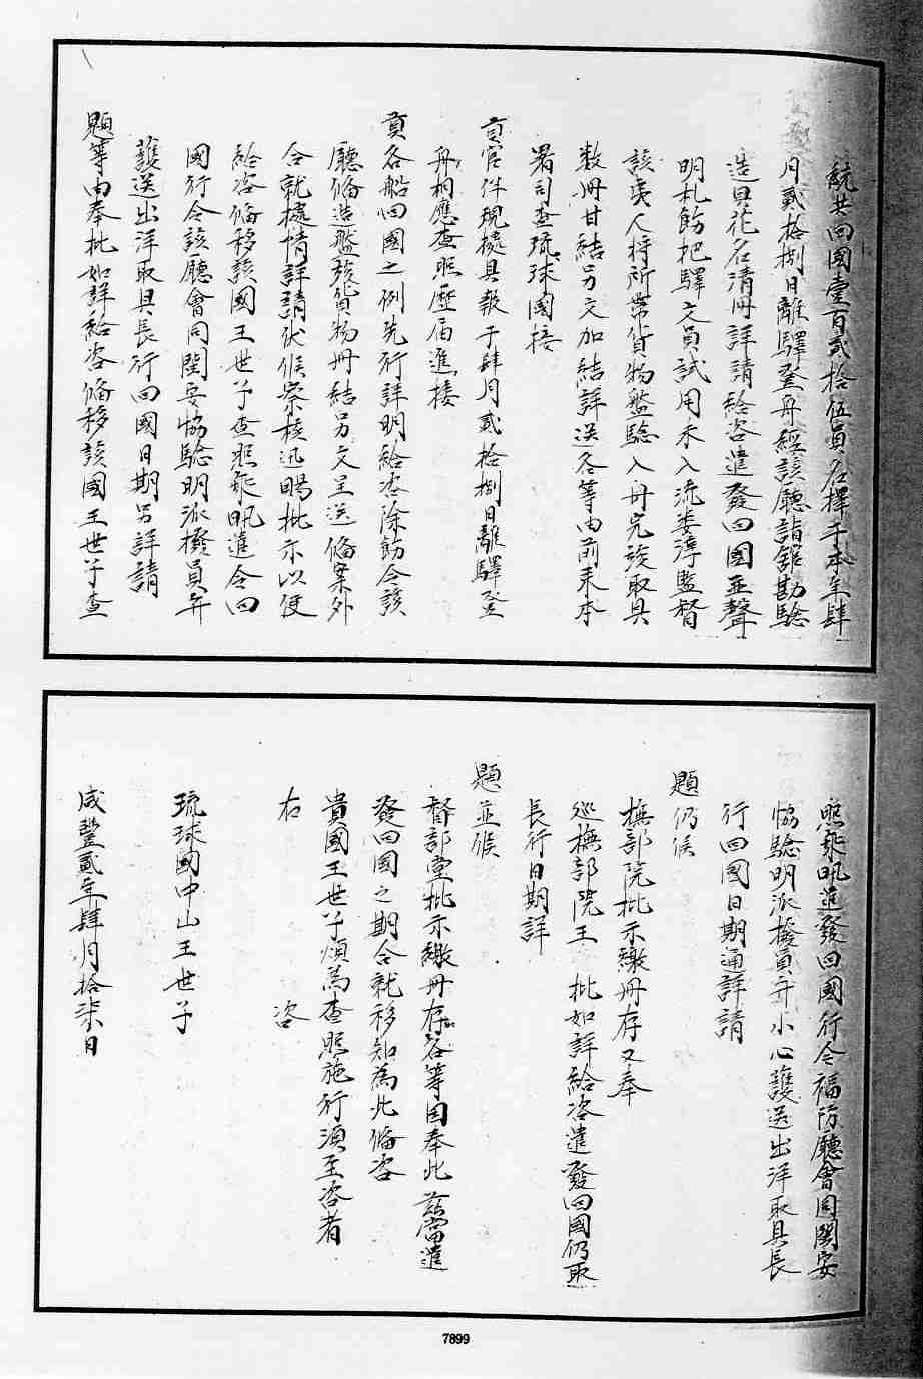 統共回國壹百貳拾伍員名擇于本年肆
月貳拾捌日離驛登舟經該廳詣館勘驗
造具花名清冊詳請給咨遣發回國並聲
明札飭把驛文員試用未入流婁淳監督
該夷人將所帶貨物盤驗入舟完竣取具
數冊甘結另文加結詳送各等由前來本
署司查琉球國接
貢官伴現據具報于肆月貳拾捌日離驛登
舟相應查照歷届進接
貢各船回國之例先行詳明給咨除飭令該
廳俻造盤驗貨物冊結另文呈送俻案外
合就據情詳請伏候察核迅賜批示以便
給咨俻移該國王世子查照飛帆遣令回
國行令該廳會同閩安協驗明派撥員弁
護送出洋取具長行回國日期另詳請
題等由奉批如詳給咨俻移該國王世子查
照飛帆遣發回國行令福防廳會同閩安
協驗明派撥員弁小心護送出洋取具長
行回國日期通詳請
題仍候
撫部院批示繳冊存又奉
巡撫部院王 批如詳給咨遣發回國仍取
長行日期詳
題並候
督部堂批示繳冊存各等因奉此茲當遣
發回國之期合就移知為此俻咨
貴國王世子煩為查照施行須至咨者
右 咨
琉球國中山王世子
咸豐貳年肆月拾柒日
7899